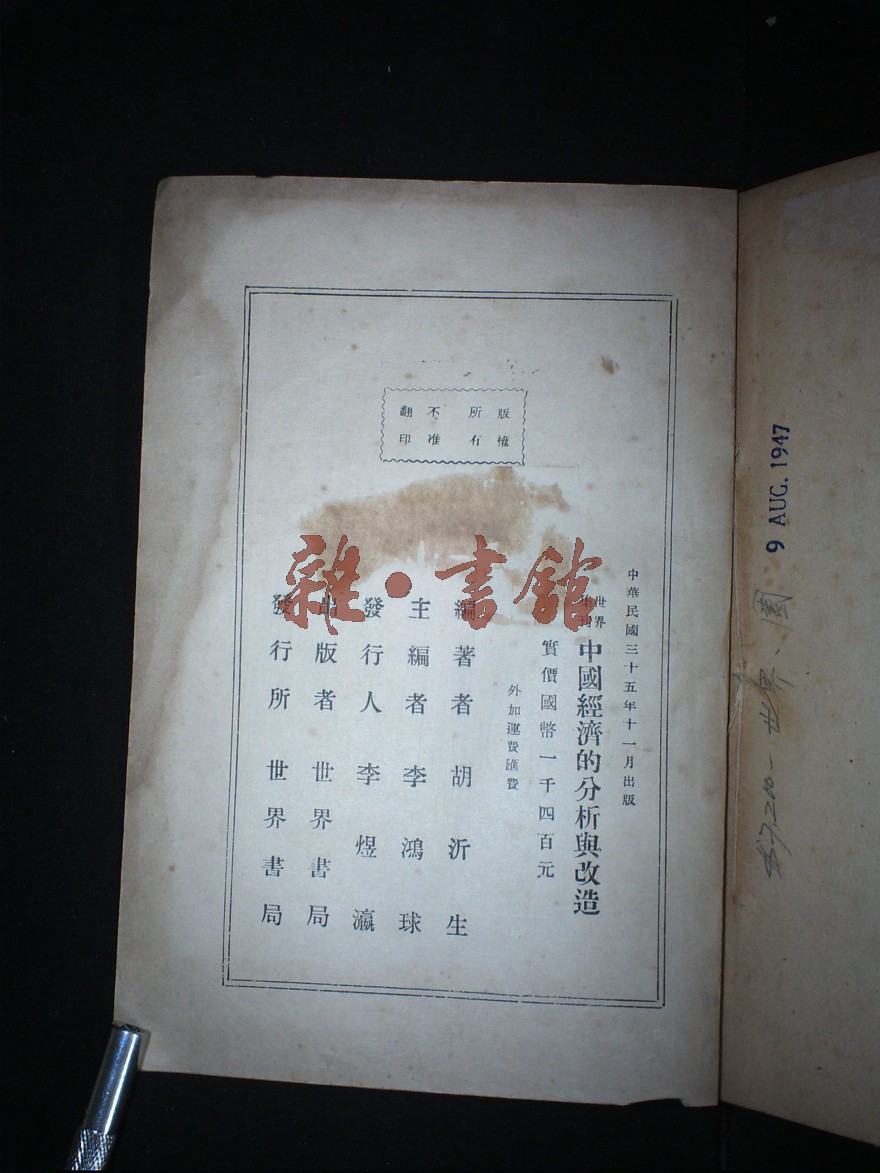 版權所有
不准翻印
中華民國三十五年十一月出版
世界集刊 中國經濟的分析與改造
實價國幣一千四百元
外加運費匯費
編著者 胡沂生
主編者 李鴻球
發行人 李煜瀛
出版者 世界書局
發行所 世界書局
雜·書館
9 AUG. 1947